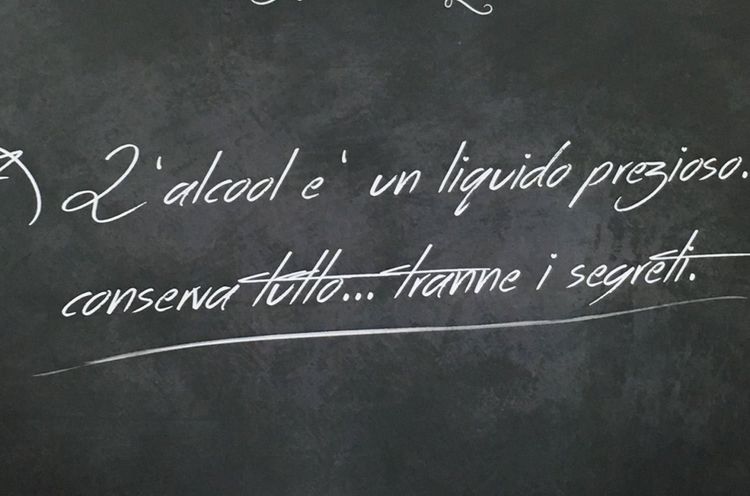 L'alcool e' un liquido prezioso.
conserva tutto... tranne i segreti.